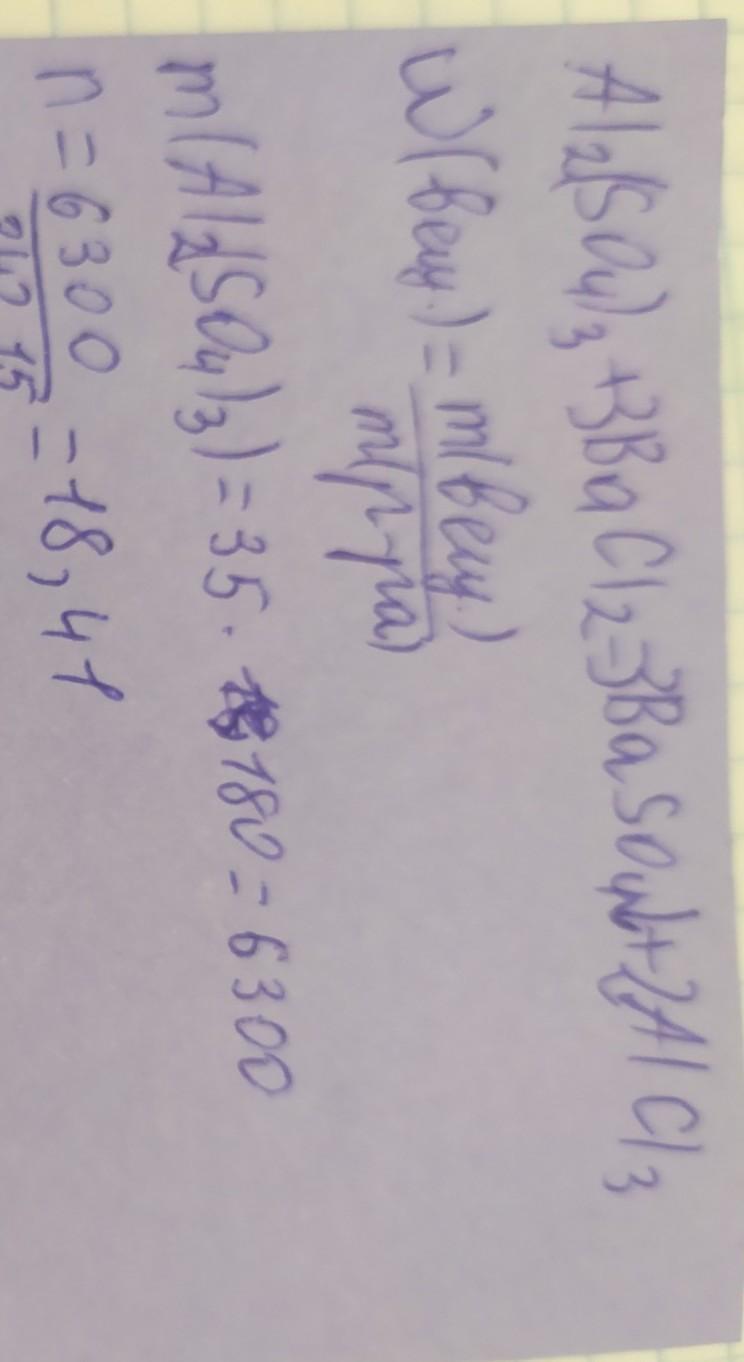 Al2(SO4)3+3BaCl2=3BaSO4↓+2AlCl3
W(вещ.)=m(вещ.)
m(р-ра)
m(Al2(SO4)3)=35·180=6300
n=6300=18,41
342,15